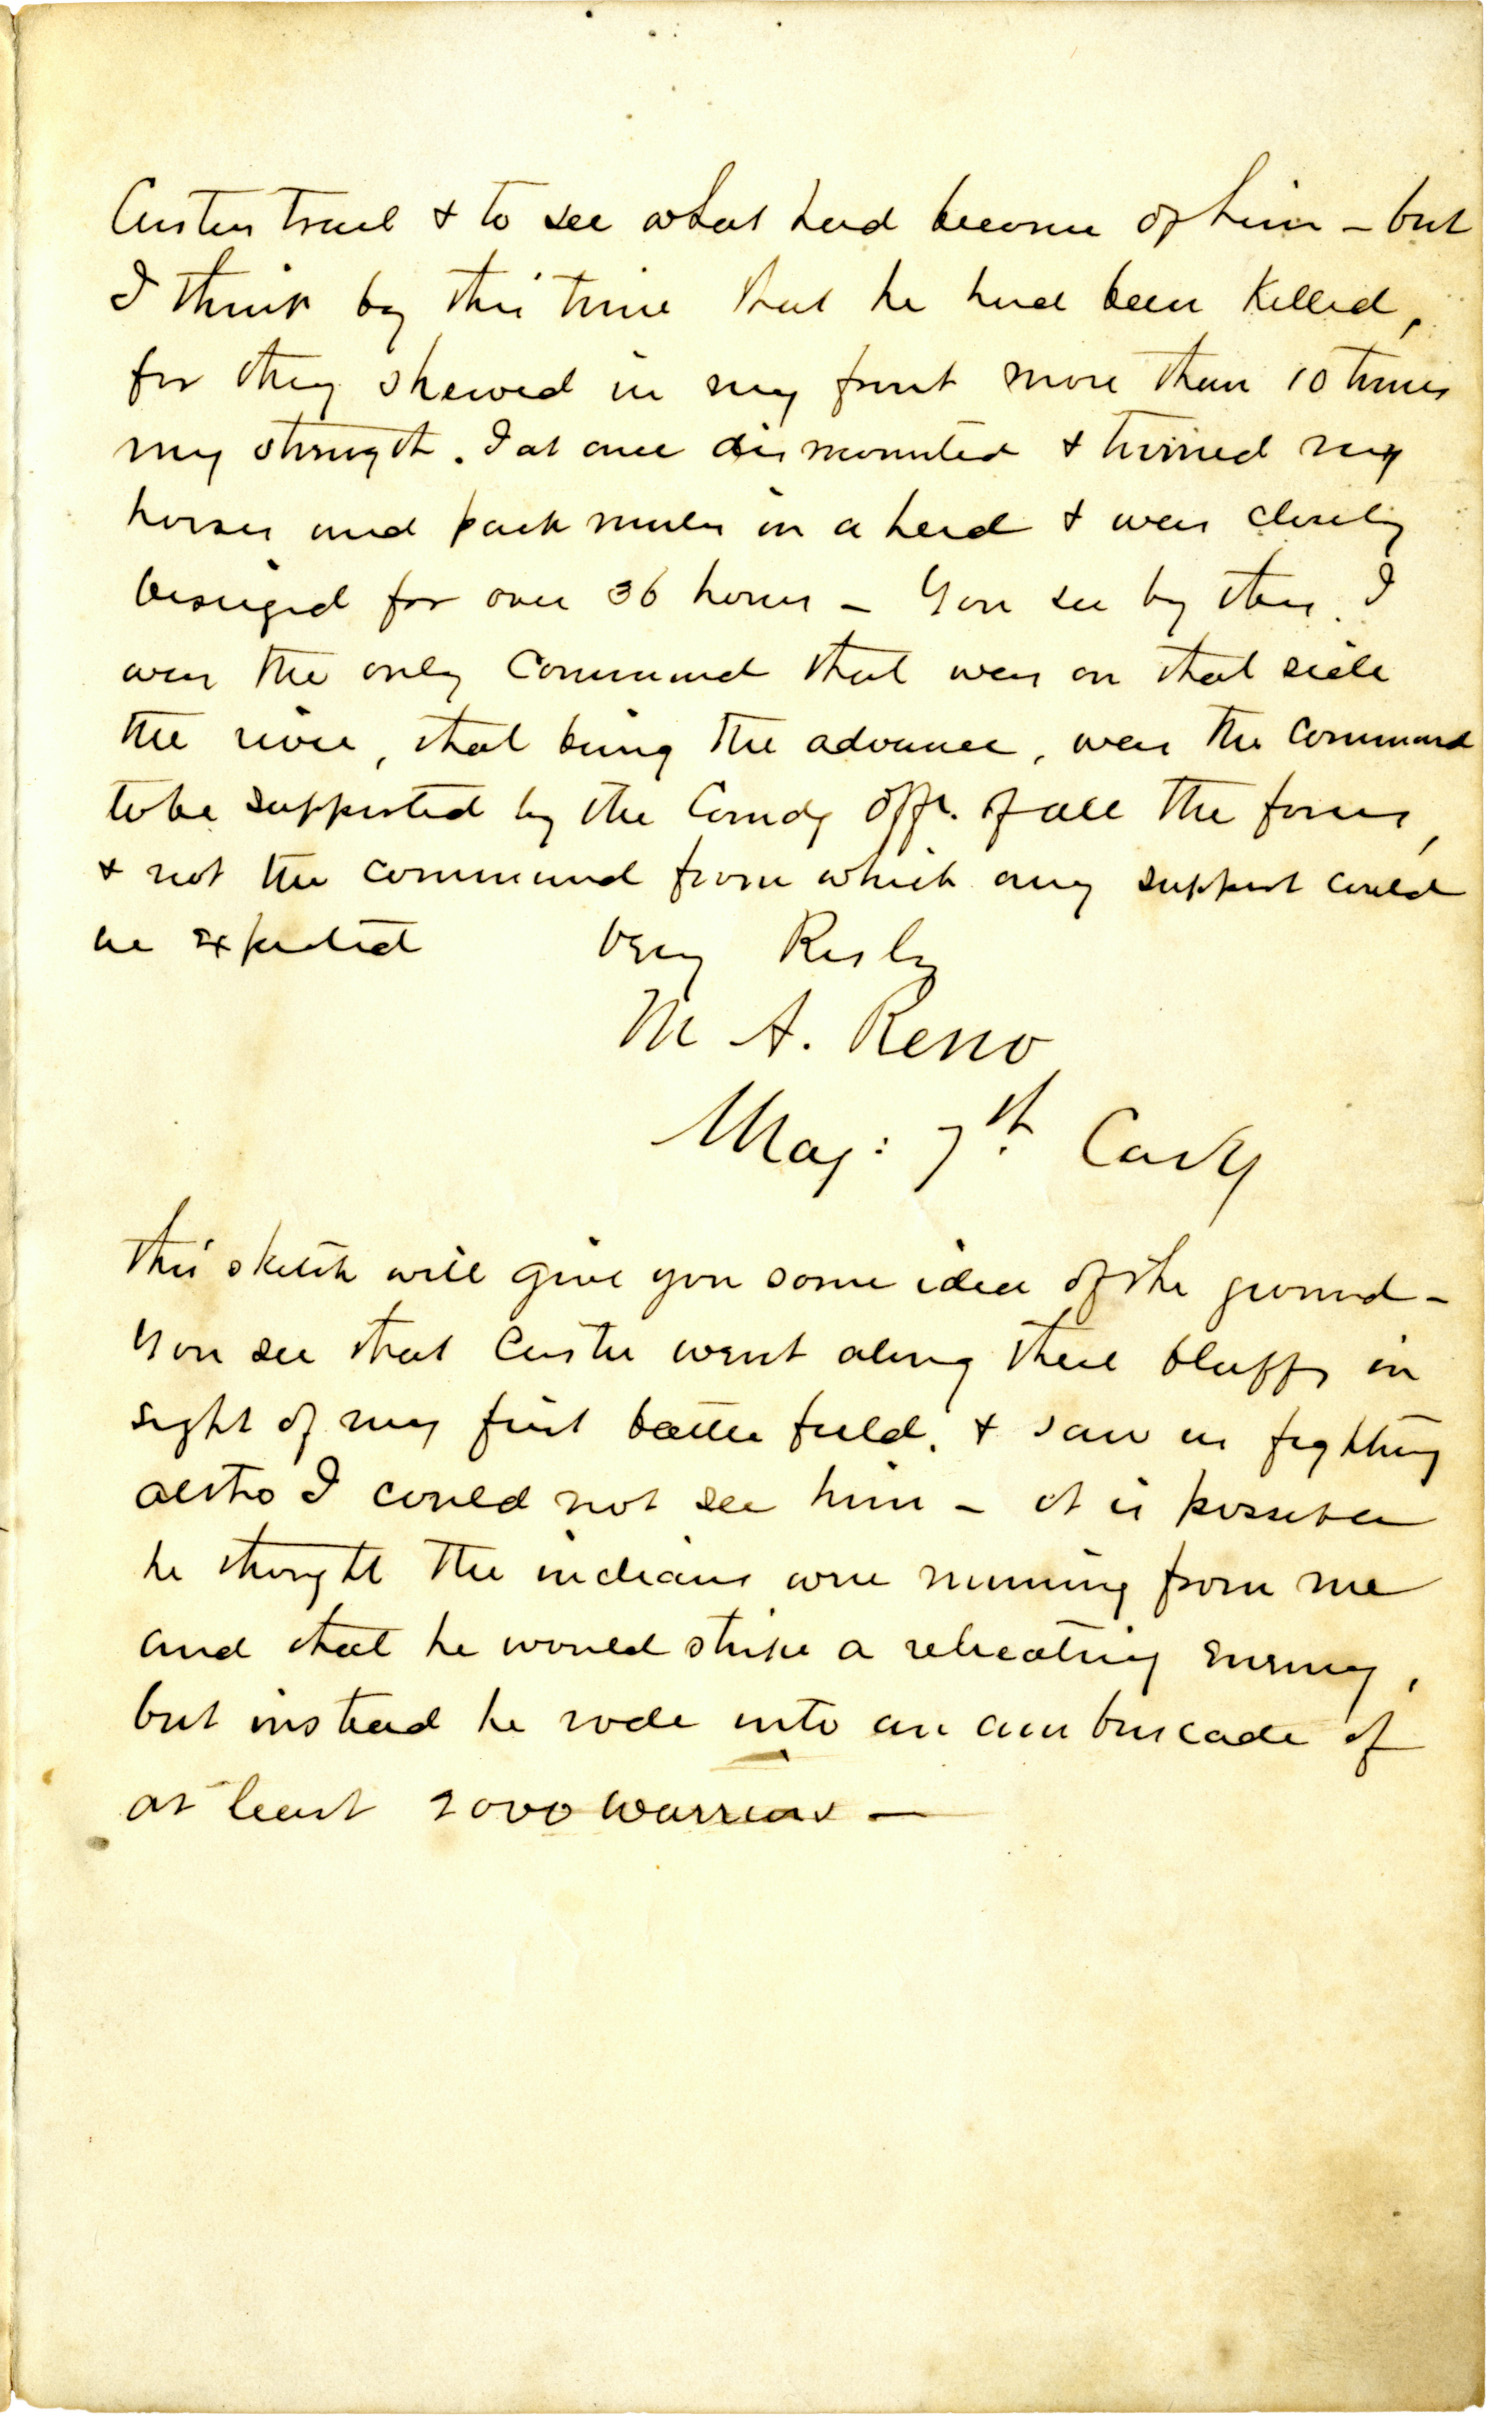 Custers trail & to see what had become of him - but
I think by this time that he had been killed,
for they shewed in my front more than 10 times
my strength. I at once dismounted & turned my
horses and pack mules in a herd & was closely
besieged for over 36 hours - You see by this, I
was the only command that was on that side
the river, that being the advance, was the command
to be supported by the Comdg Offr. of all the forces,
& not the command from which any support could
be expected Very Resly
M A. Reno
Maj: 7th Cavy
This sketch will give you some idea of the ground -
You see that Custer went along these bluffs in
sight of my first battle field, & saw us fighting
altho I could not see him - it is possible
he thought the indians were running from me
and that he would strike a retreating enemy,
but instead he rode into an ambuscade of
at least 2000 warriors -